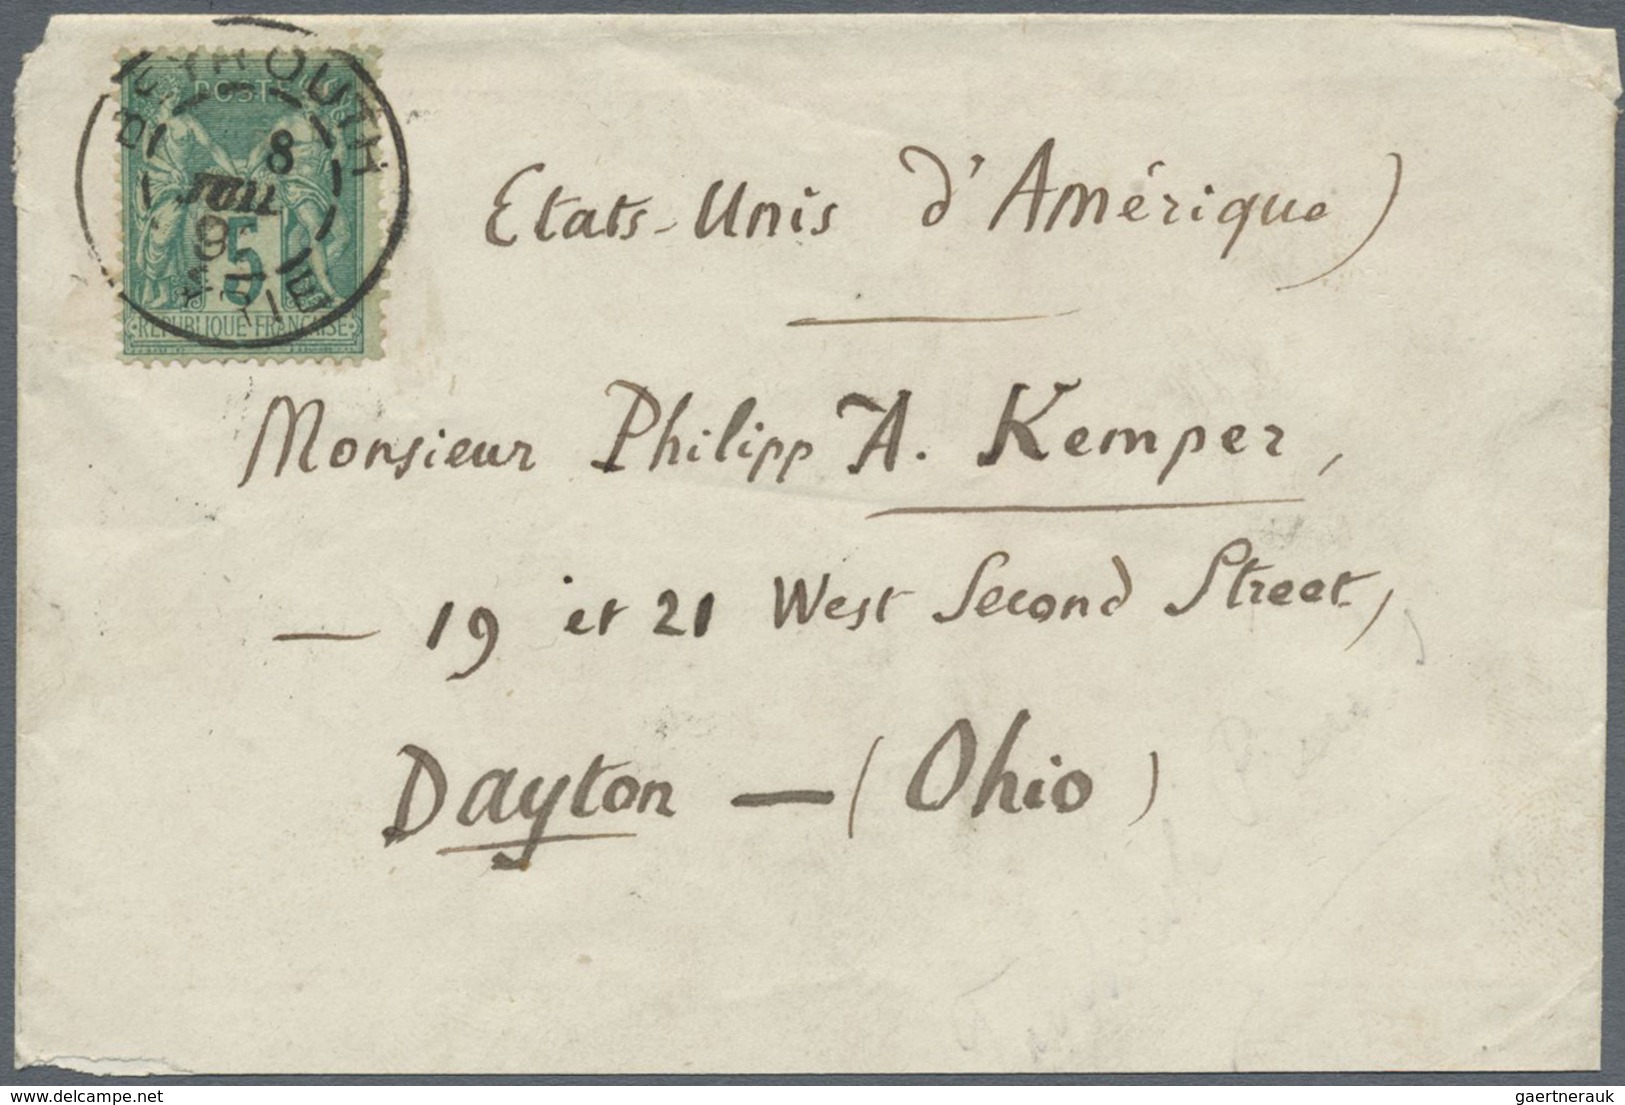 BEYROUTH
8
JUIL
9
SYRIE
POSTES
5
RÉPUBLIQUE FRANÇAISE
Etats-Unis d'Amérique)
Monsieur Philipp A. Kemper,
— 19 et 21 West Second Street,
Dayton — (Ohio)
delcampe.net
gaertnerauk